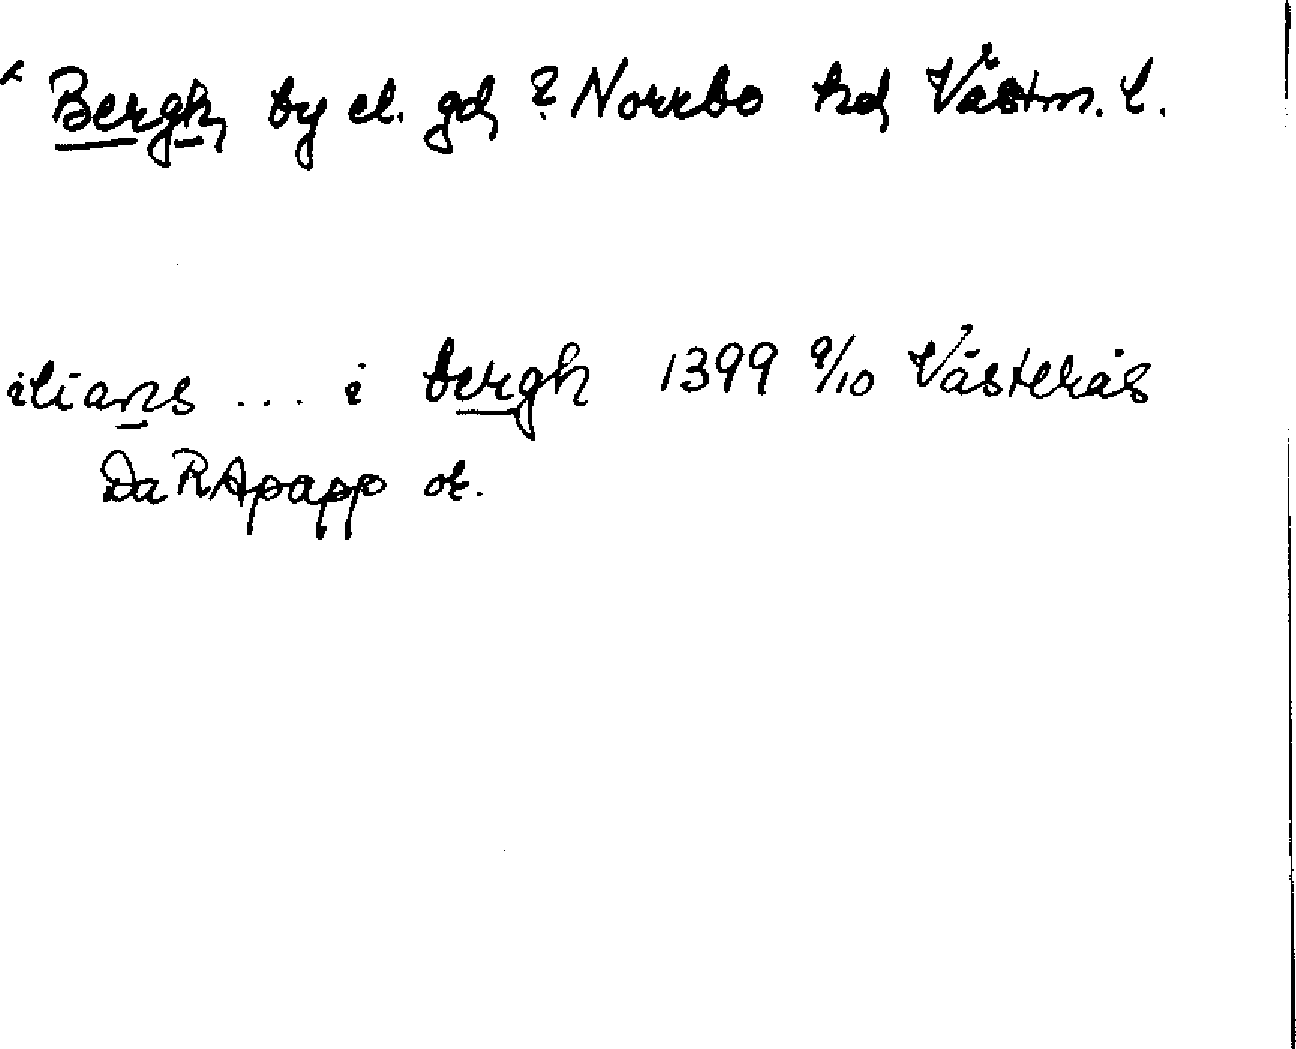 Bergh, by el. gd, ? Norrbo hd, Västm. l.
ilians ... i bergh 1399 9/10 Västerås
Da RApapp or.